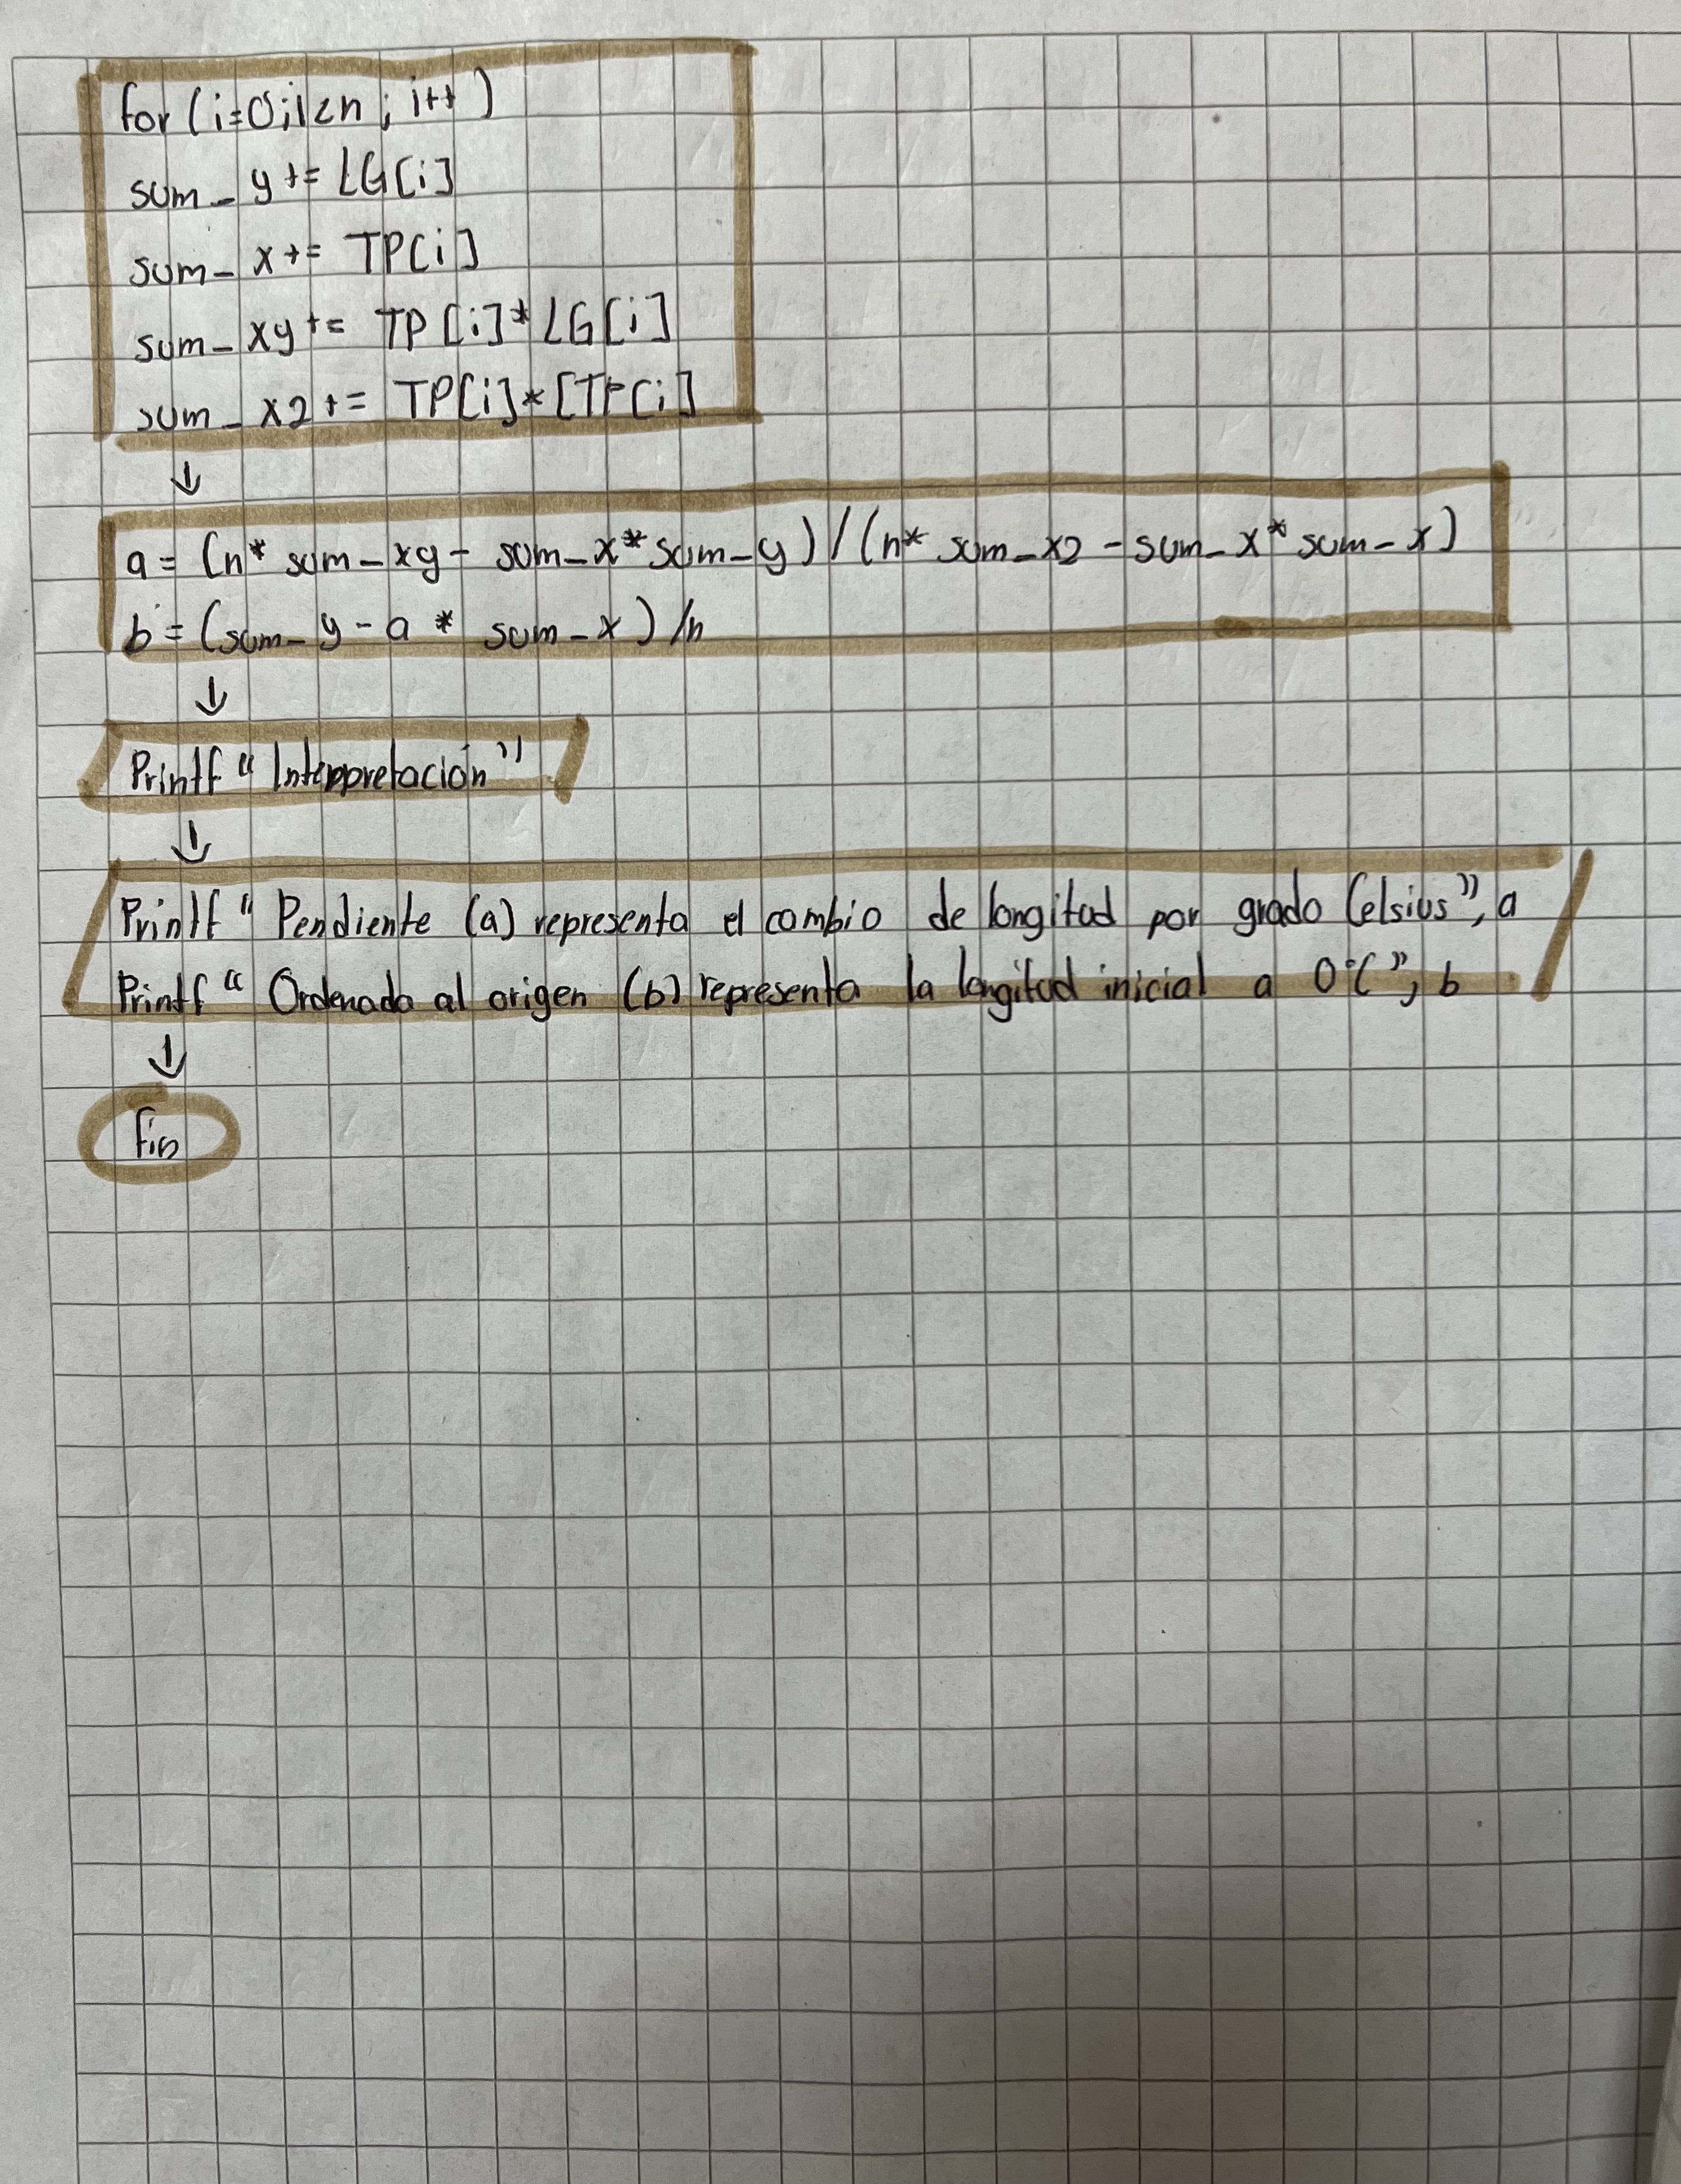 for (i=0;i<n ; i++ )
sum_y += LG[i]
sum_x += TP[i]
sum_xy += TP[i]*LG[i]
sum_x2 += TP[i]*[TP[i]
↓
a = (n* sum_xy - sum_x* sum_y) / (n* sum_x2 - sum_x* sum_x)
b = (sum_y - a * sum_x) /n
↓
Printf “ Interpretación”
↓
Printf “ Pendiente (a) representa el cambio de longitud por grado Celsius”, a
Printf “ Ordenada al origen (b) representa la longitud inicial a 0°C”, b
↓
Fin